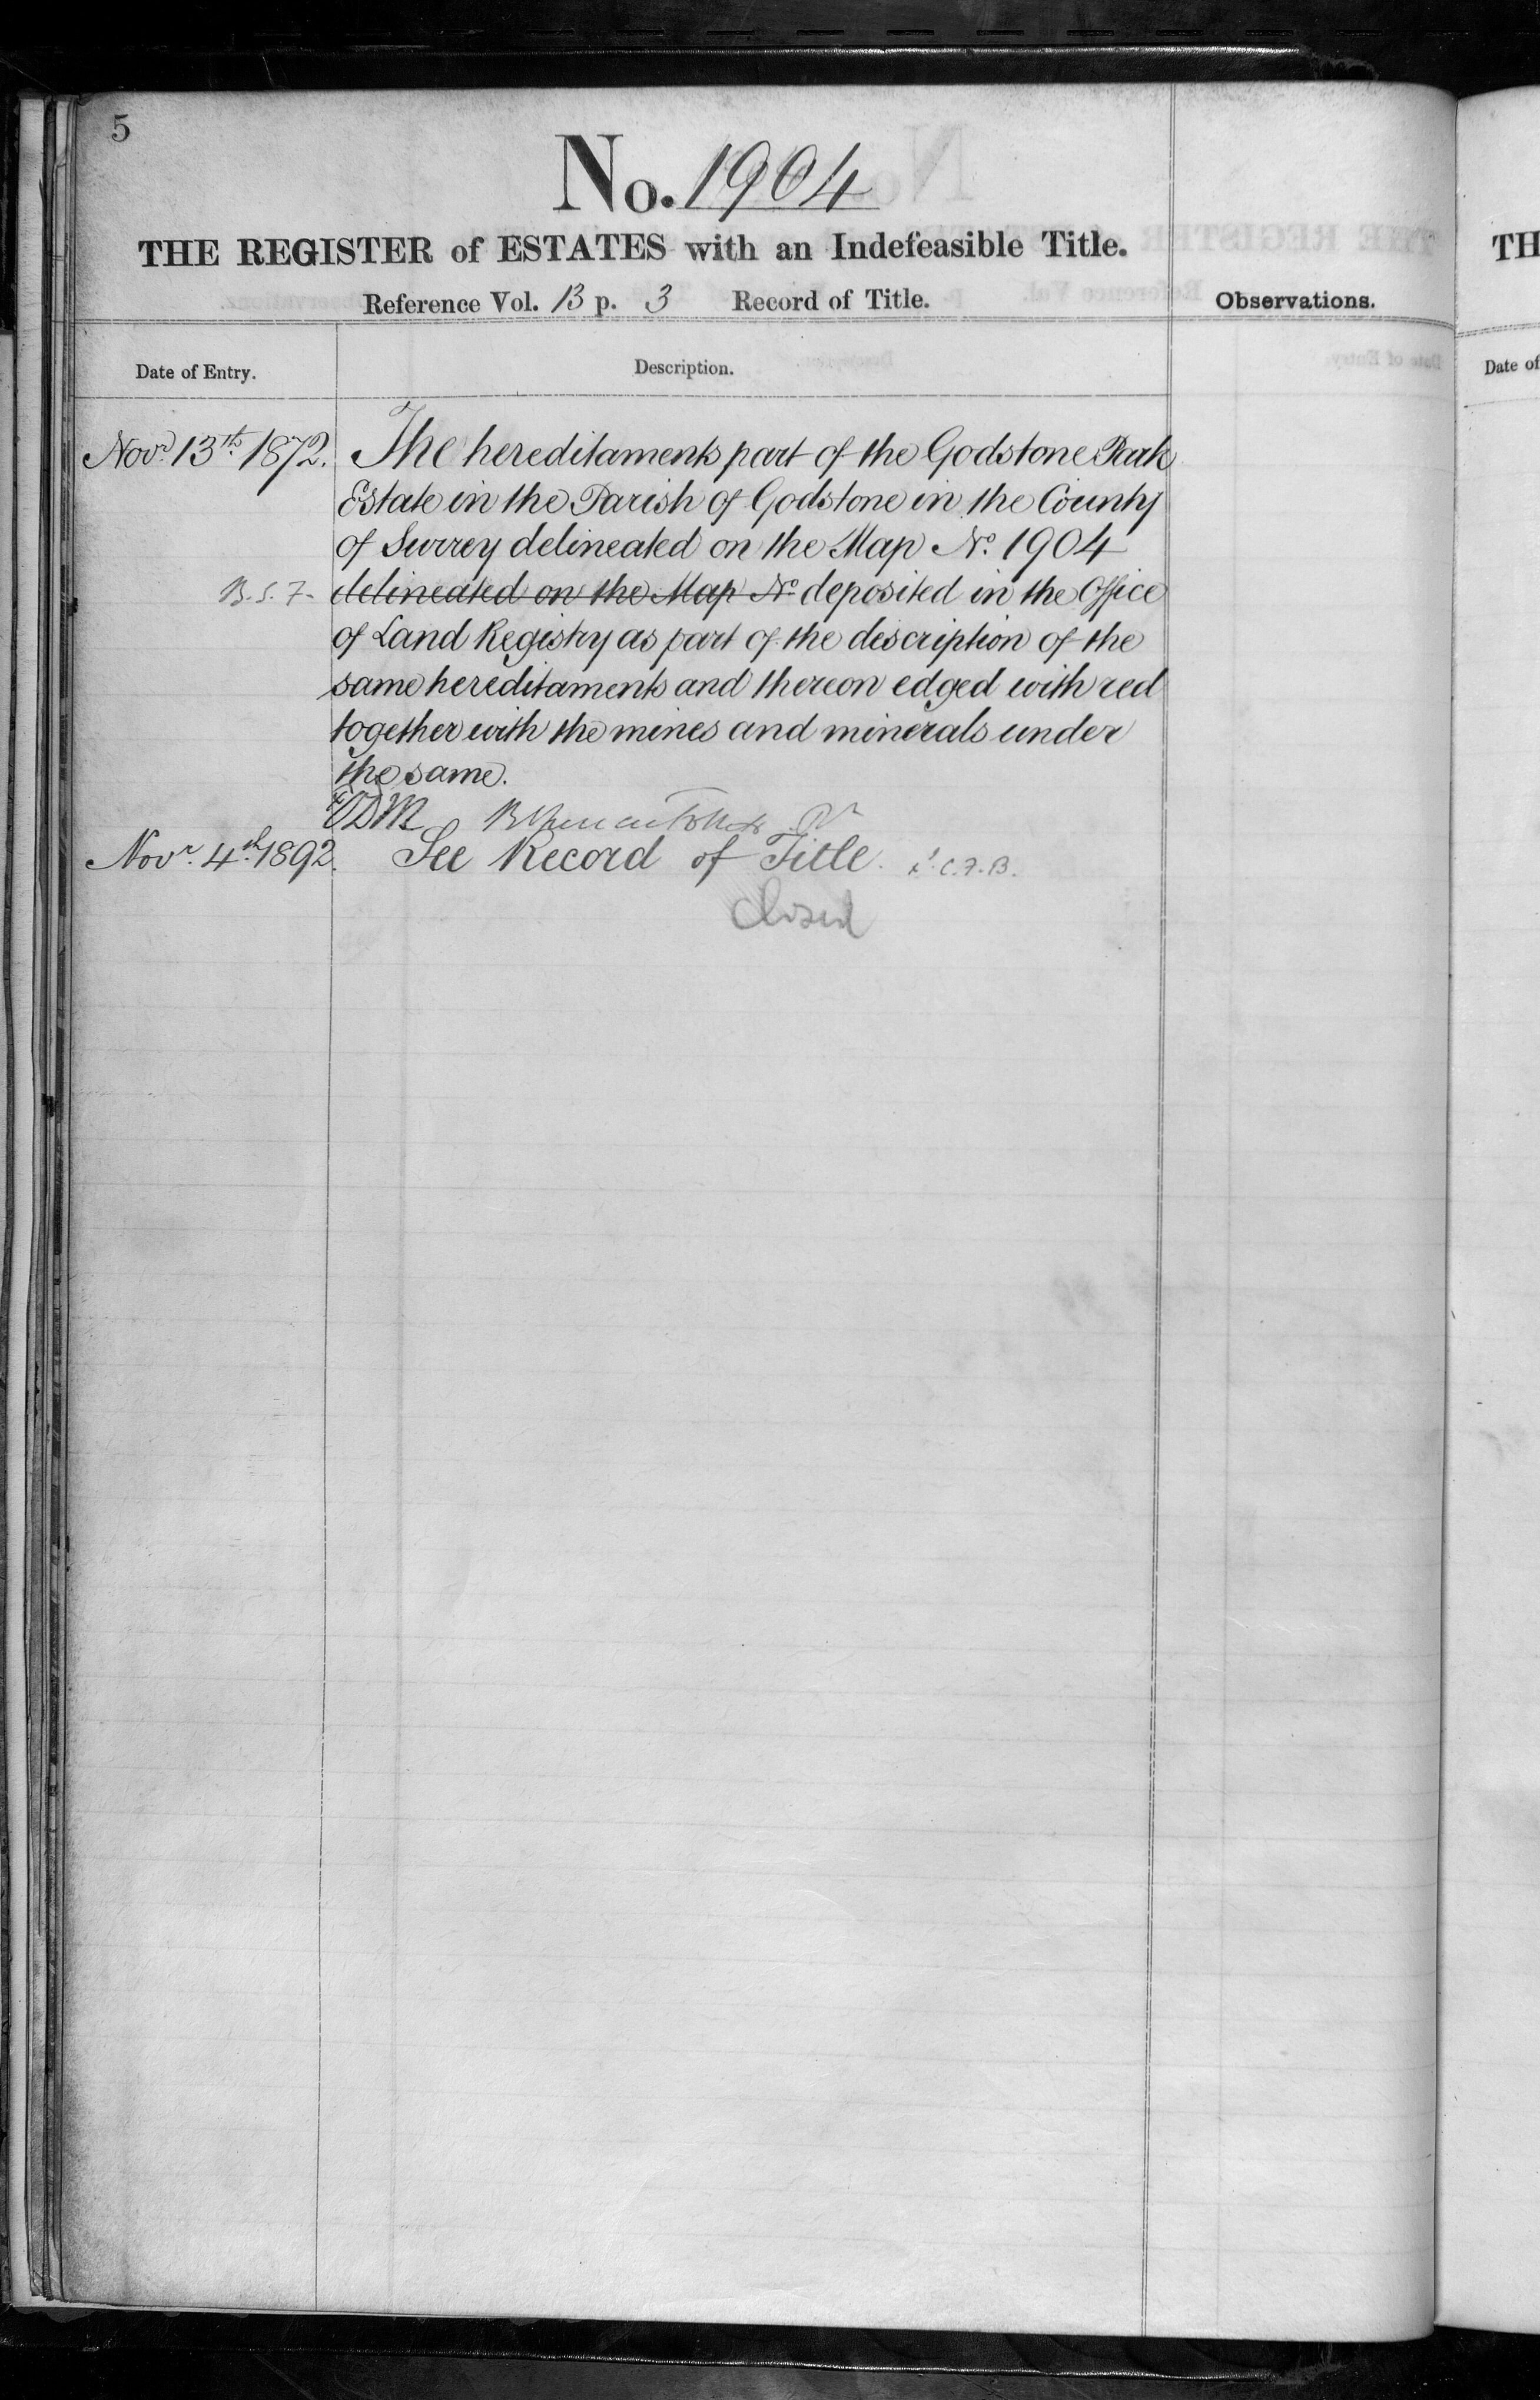 5
No. 1904
THE REGISTER of ESTATES with an Indefeasible Title.
Reference Vol. B p. 3 Record of Title.
Observations.
Date of Entry.
Description.
Novr 13th 1872. The hereditaments part of the Godstone Park
Estate in the Parish of Godstone in the County
of Surrey delineated on the Map No. 1904
B.S.F. delineated on the Map No deposited in the Office
of Land Registry as part of the description of the
same hereditaments and thereon edged with red
together with the mines and minerals under
the same.
Novr. 4th 1892. See Record of Title. C.F.B.
Closed
TH
Date of